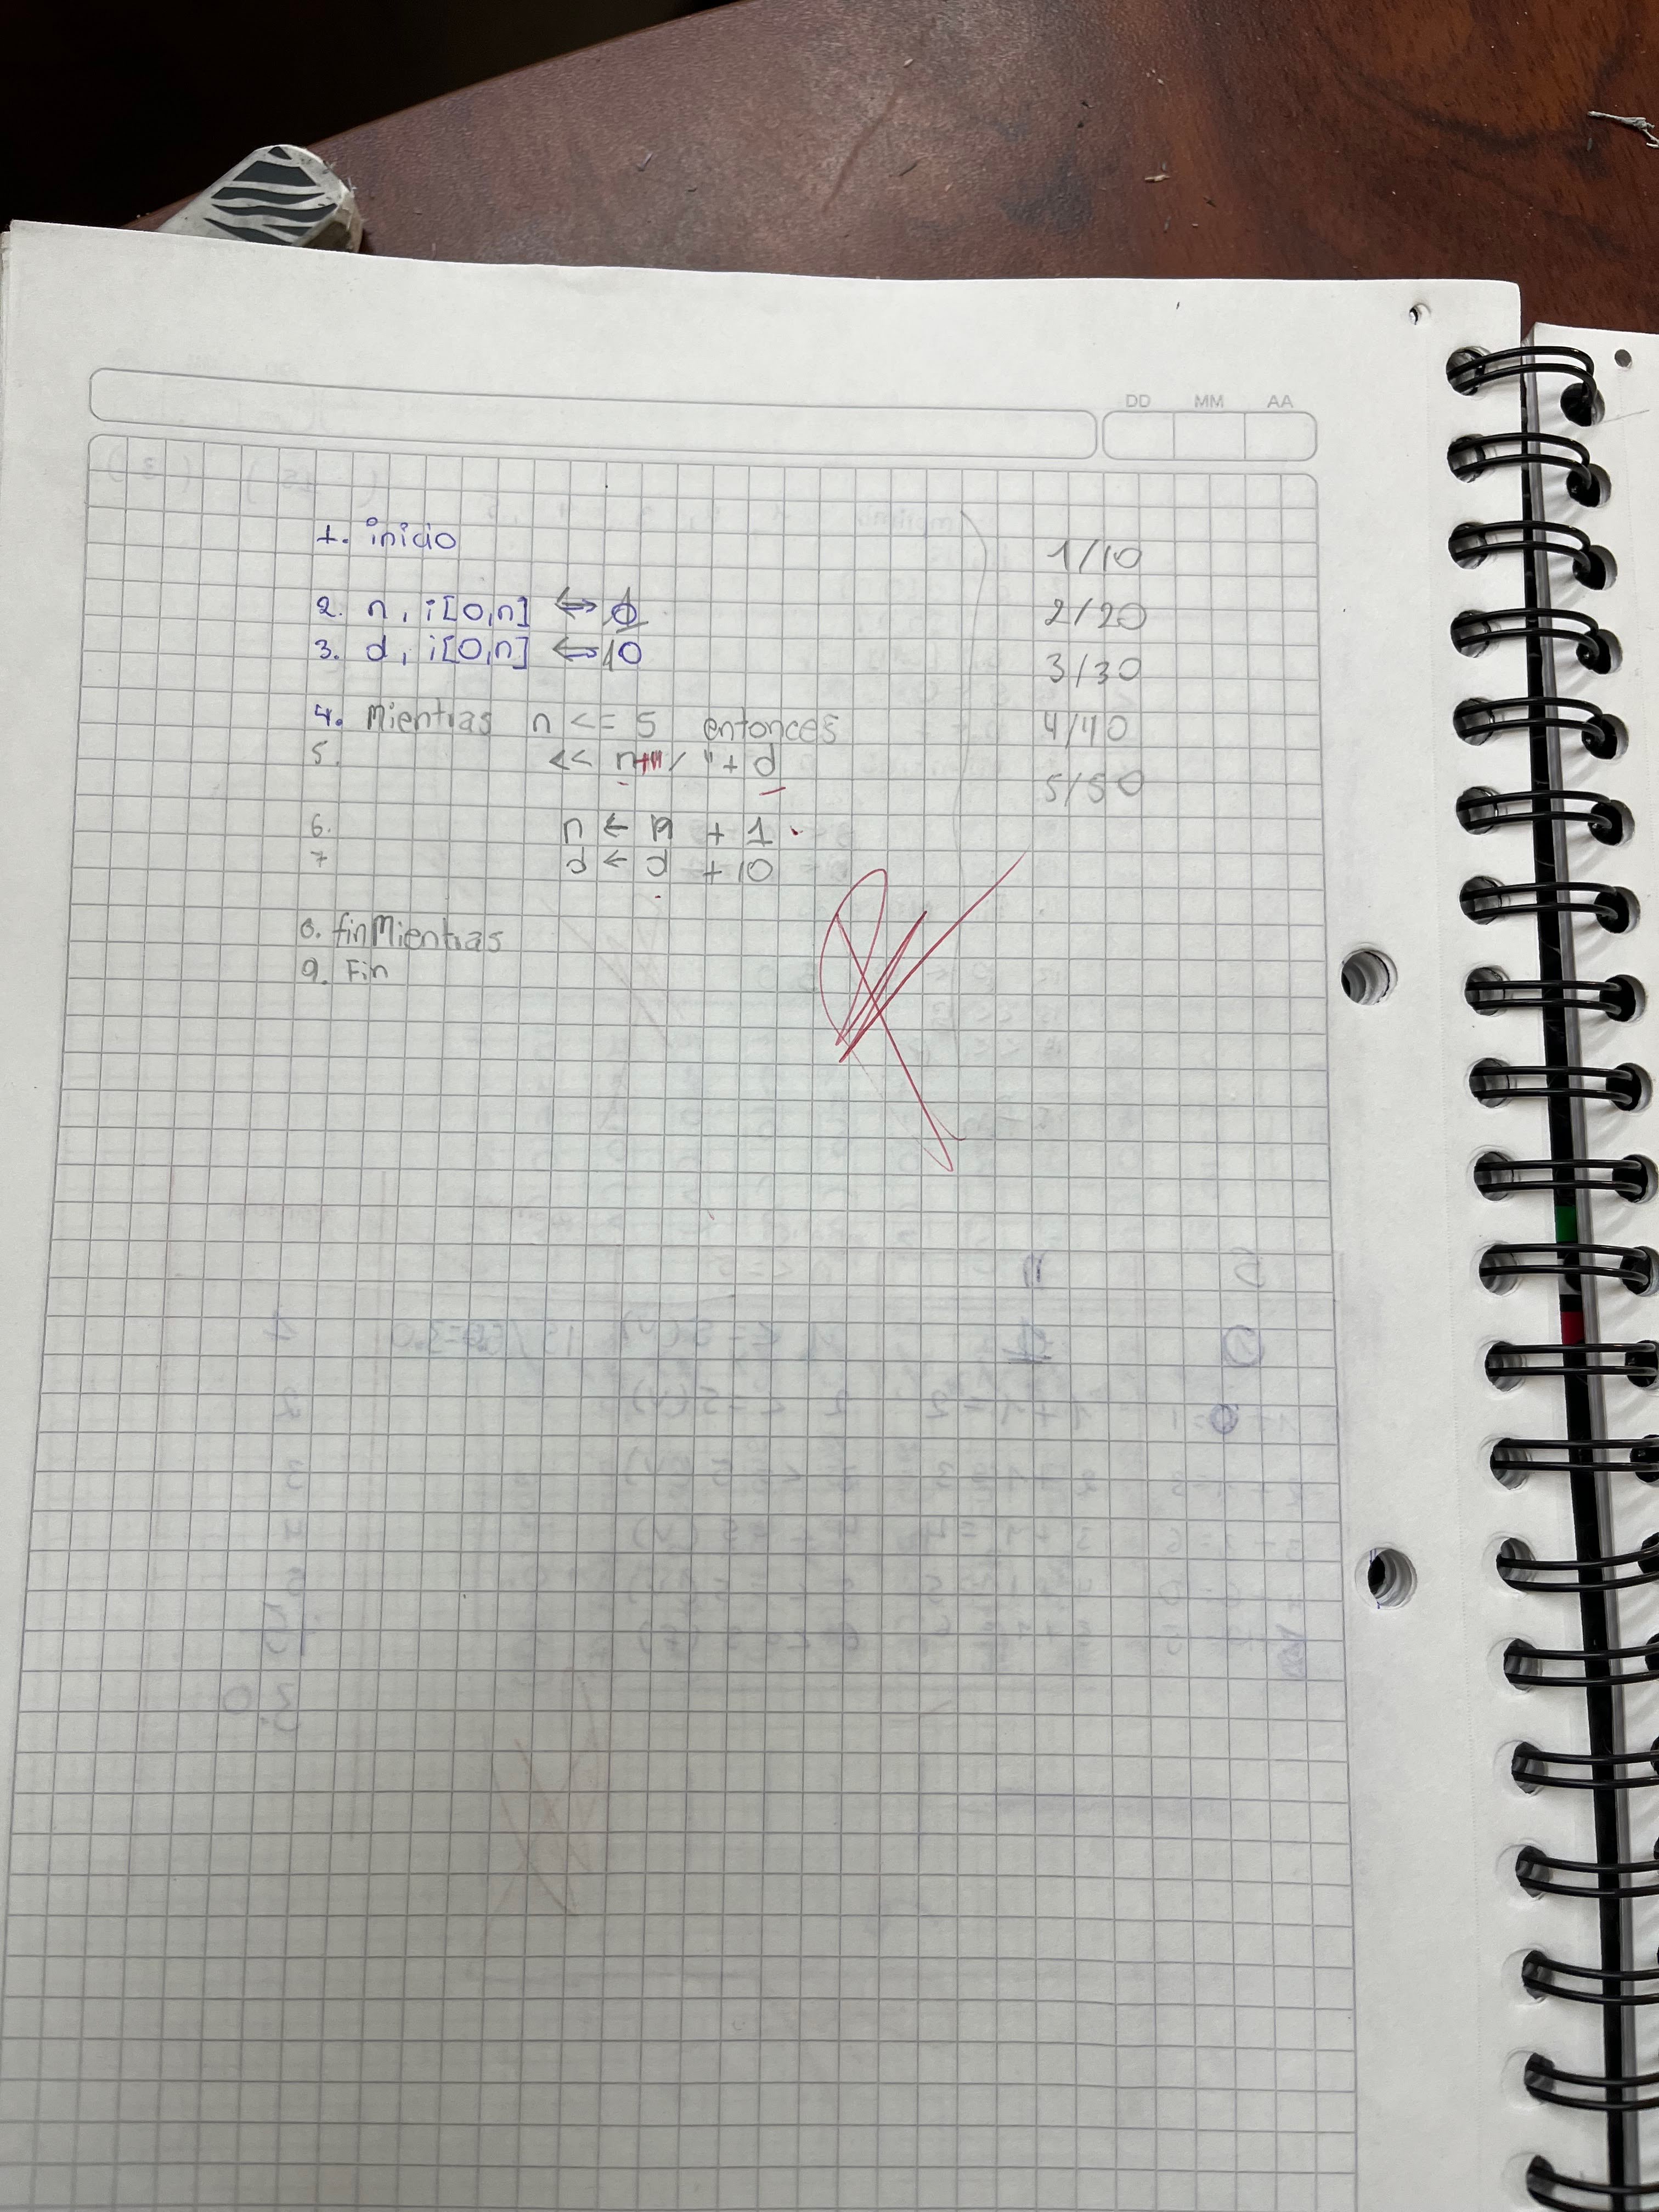 DD MM AA
1. inicio
2. n, i[0,n] ⇔ 1
3. d, i[0,n] ⇔ 10
4. Mientras n <= 5 entonces
5. << n+"/ "+ d
6. n ← n + 1
7 d ← d + 10
8. finMientras
9. Fin
1/10
2/20
3/30
4/40
5/50